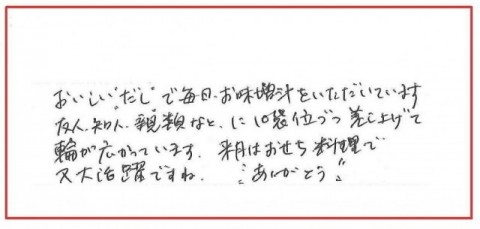 おいしい"だし"で毎日、お味増汁をいただいています
友人、知人、親類など、に10袋位づつ差し上げて
輪が広がっています。来月はおせち料理で
又大活躍ですね。"ありがとう"